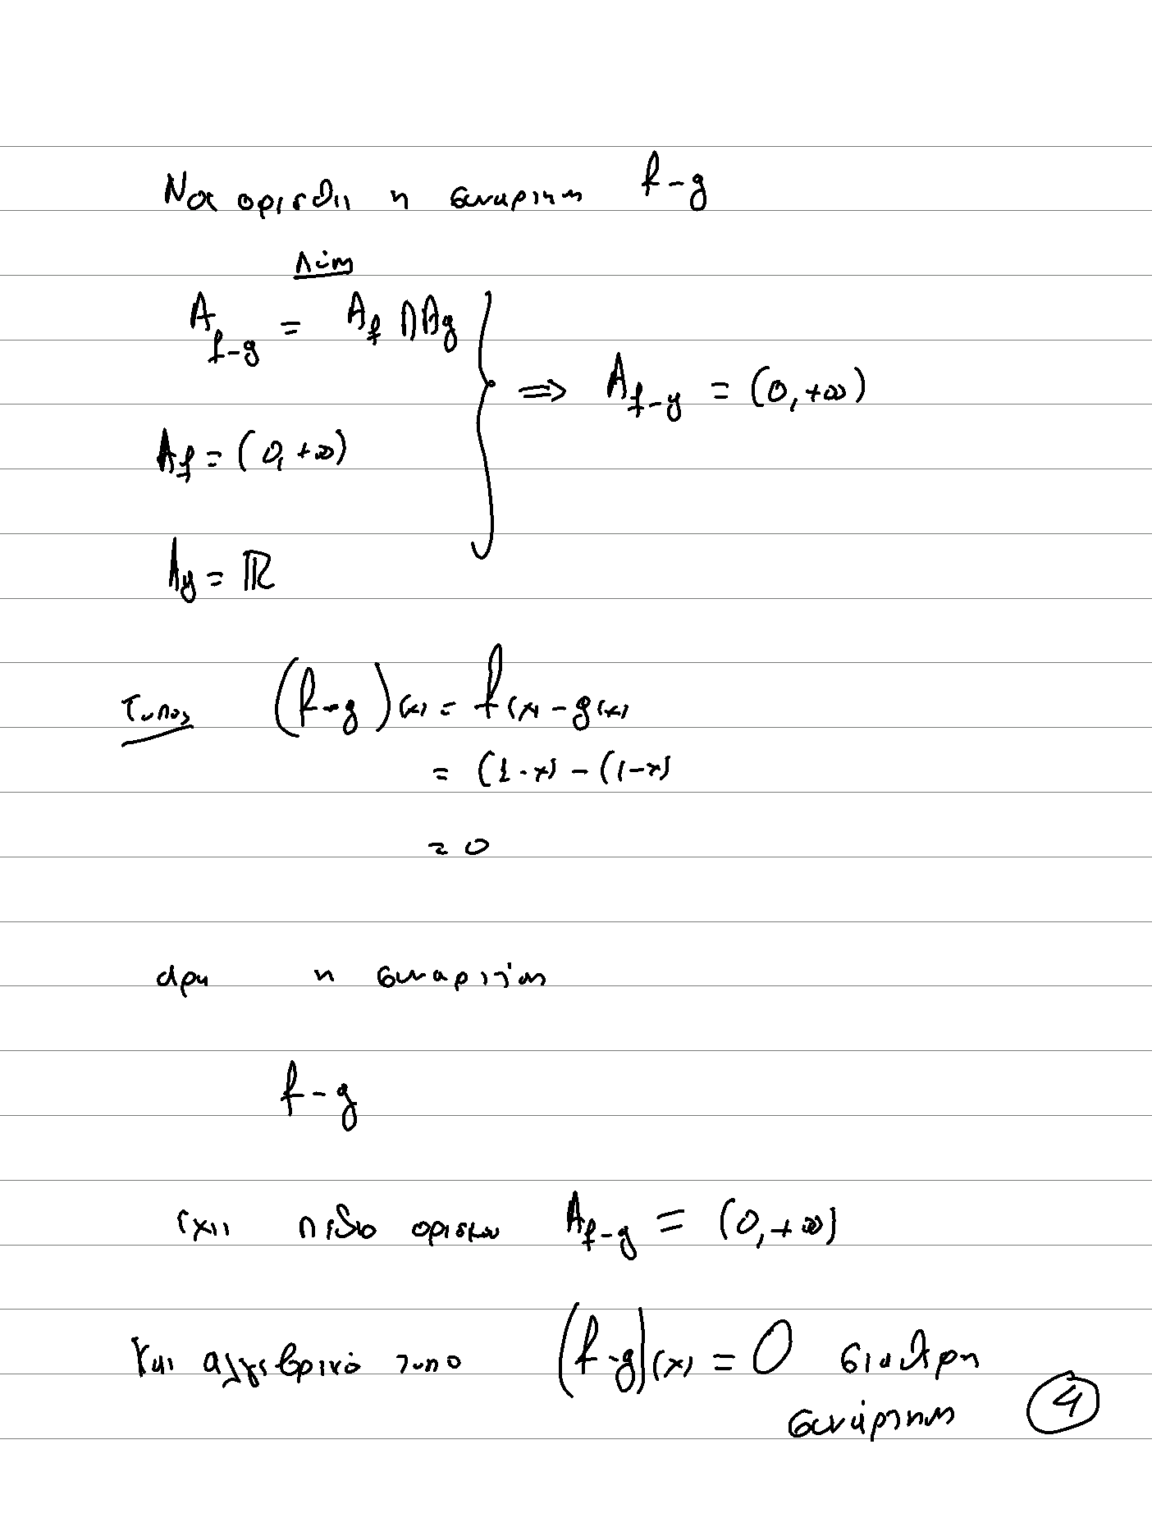 Να ορισθεί η συνάρτηση f-g
Λύση
A_{f-g} = A_f ∩ A_g
⇒ A_{f-g} = (0,+∞)
A_f = (0,+∞)
A_g = ℝ
Τύπος (f-g)(x) = f(x) - g(x)
= (1-x) - (1-x)
= 0
άρα η συνάρτηση
f-g
έχει πεδίο ορισμού A_{f-g} = (0,+∞)
και αλγεβρικό τύπο (f-g)(x) = 0 σταθερή
συνάρτηση 4